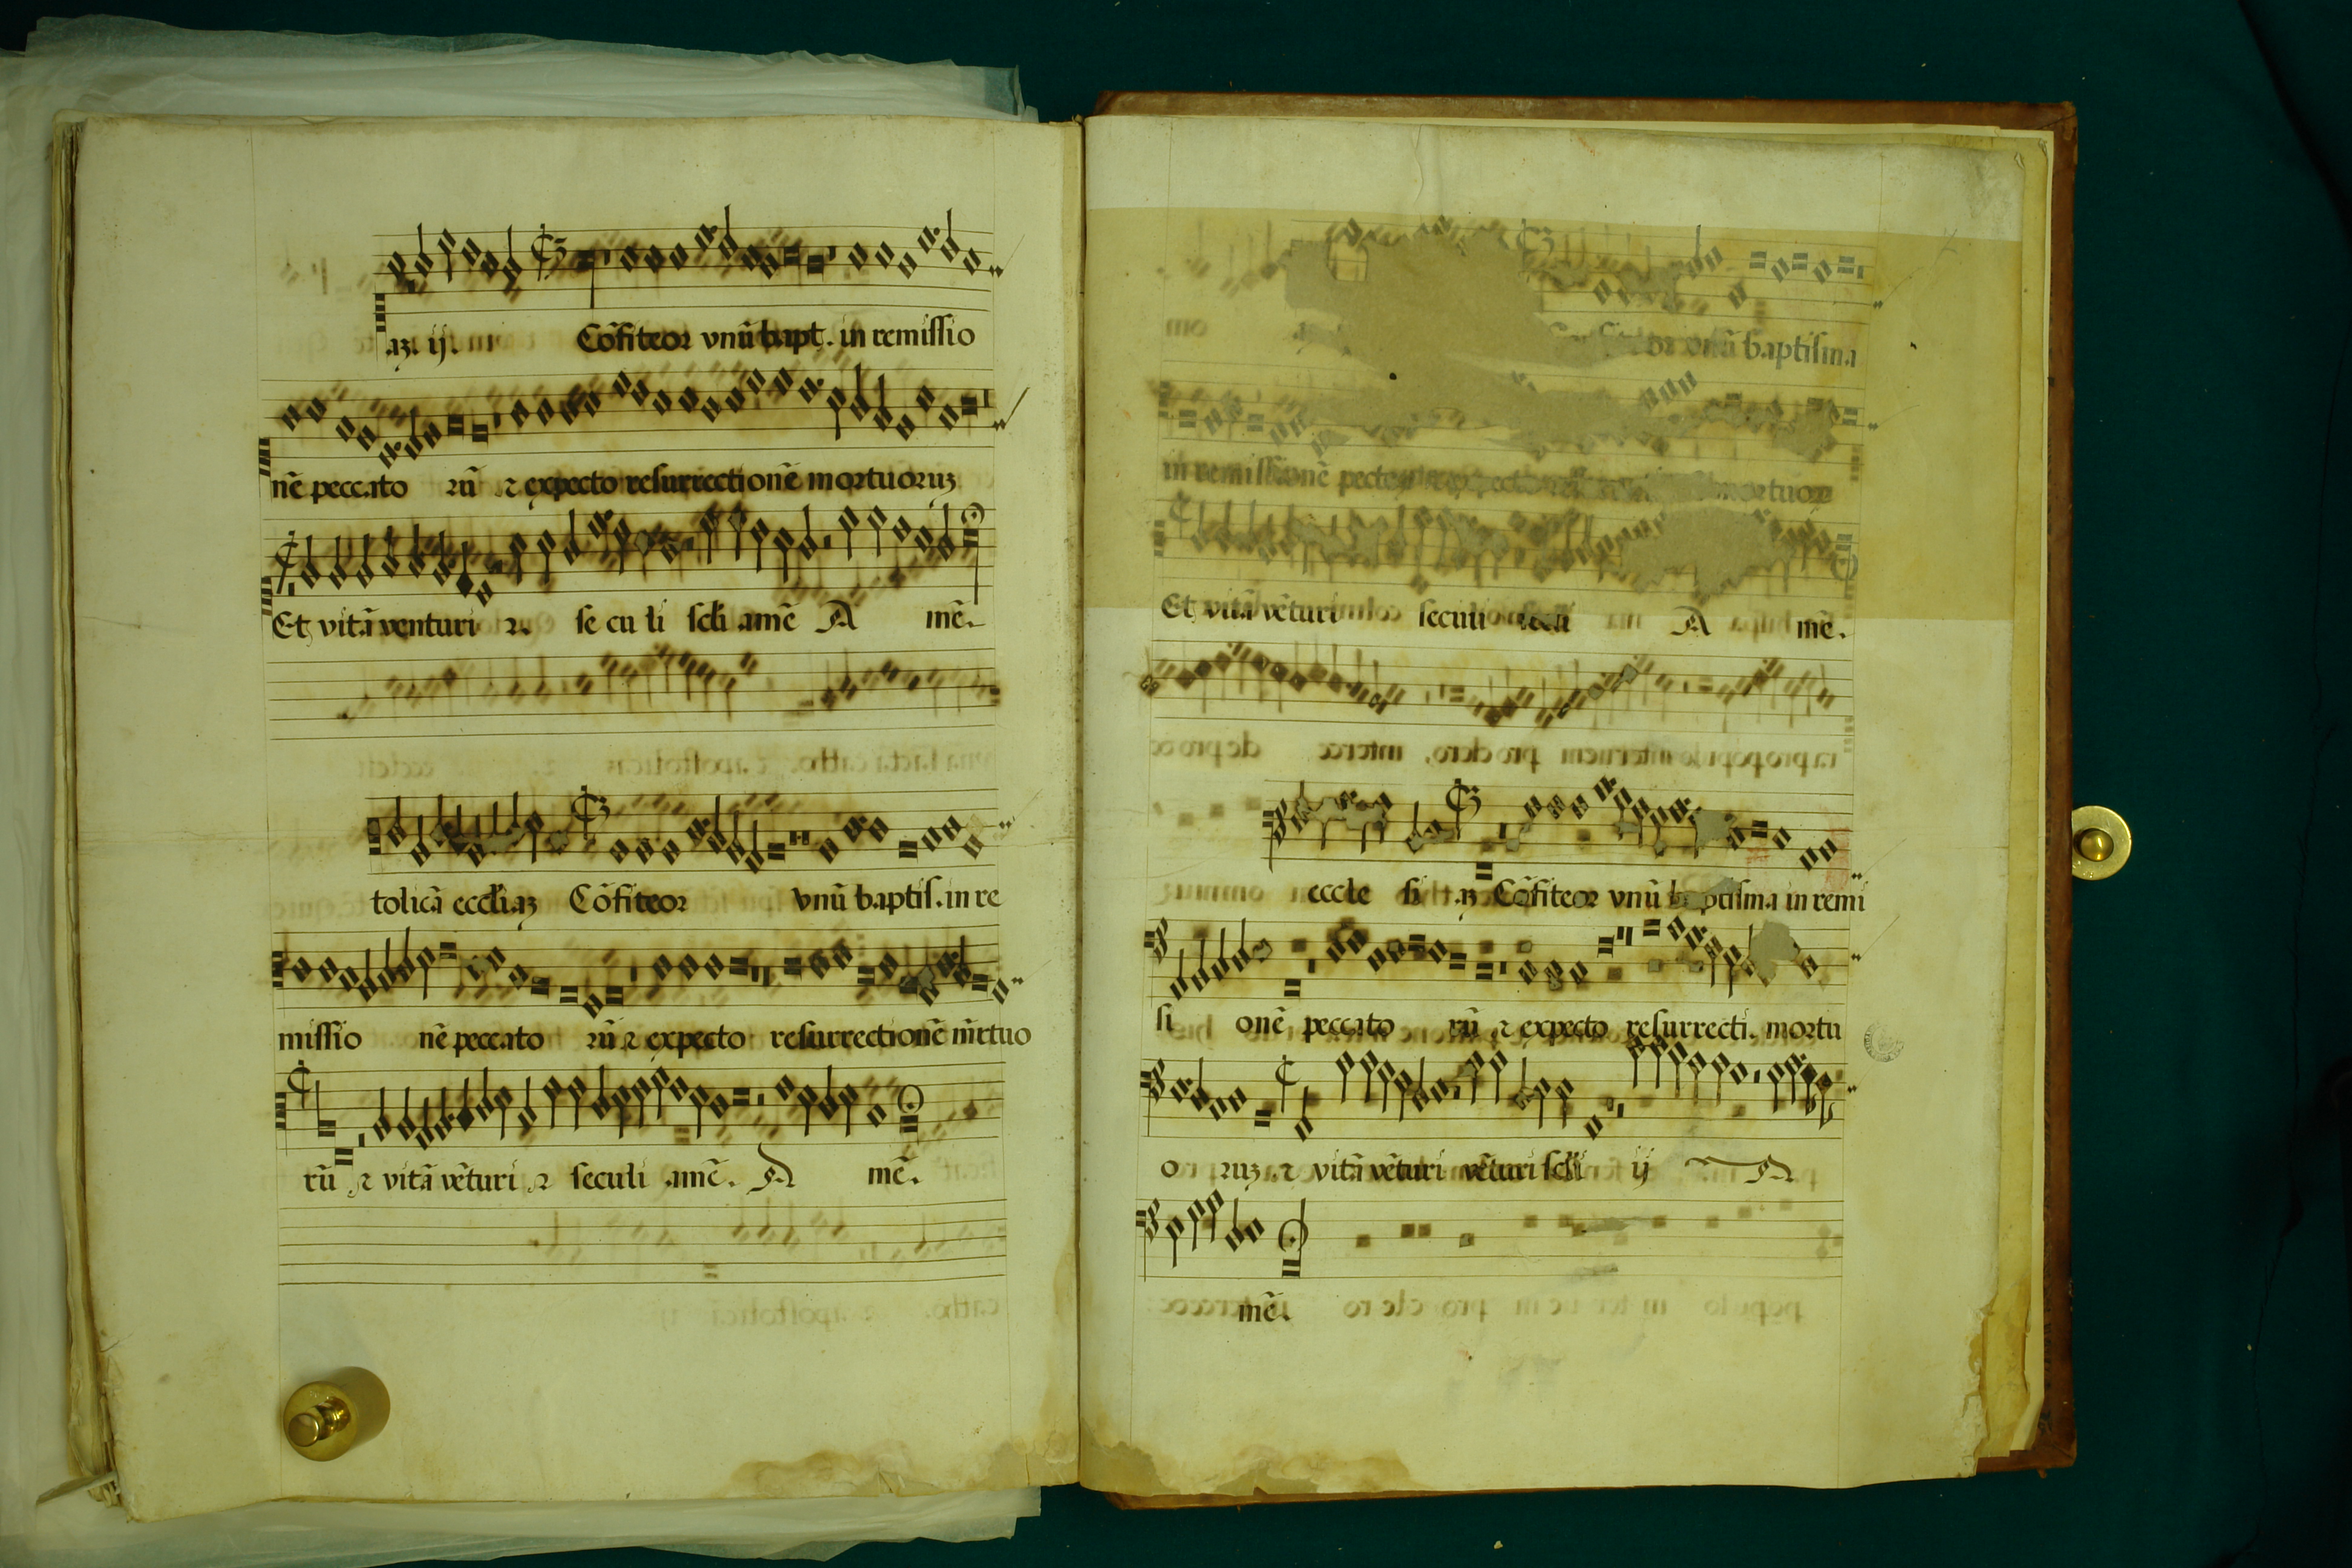 az. ij. Cōfiteor vnū bapt. in remissio
nē peccato rū ⁊ expecto resurrectionē mortuoruz
Et vitā venturi ⁊ se cu li scli amē A mē.
tolicā eccliaz Cōfiteor vnū baptis. in re
missio nē peccato rū ⁊ expecto resurrectionē mrtuo
rū ⁊ vitā vēturi ⁊ seculi amē. A mē.
vnū baptisma
in remissionē
Et vitā vēturi seculi A mē.
eccle si az Cōfiteor vnū baptisma in remi
si onē peccato rū ⁊ expecto resurrecti. mortu
o ruz ⁊ vitā vēturi vēturi scli ij A
mē.